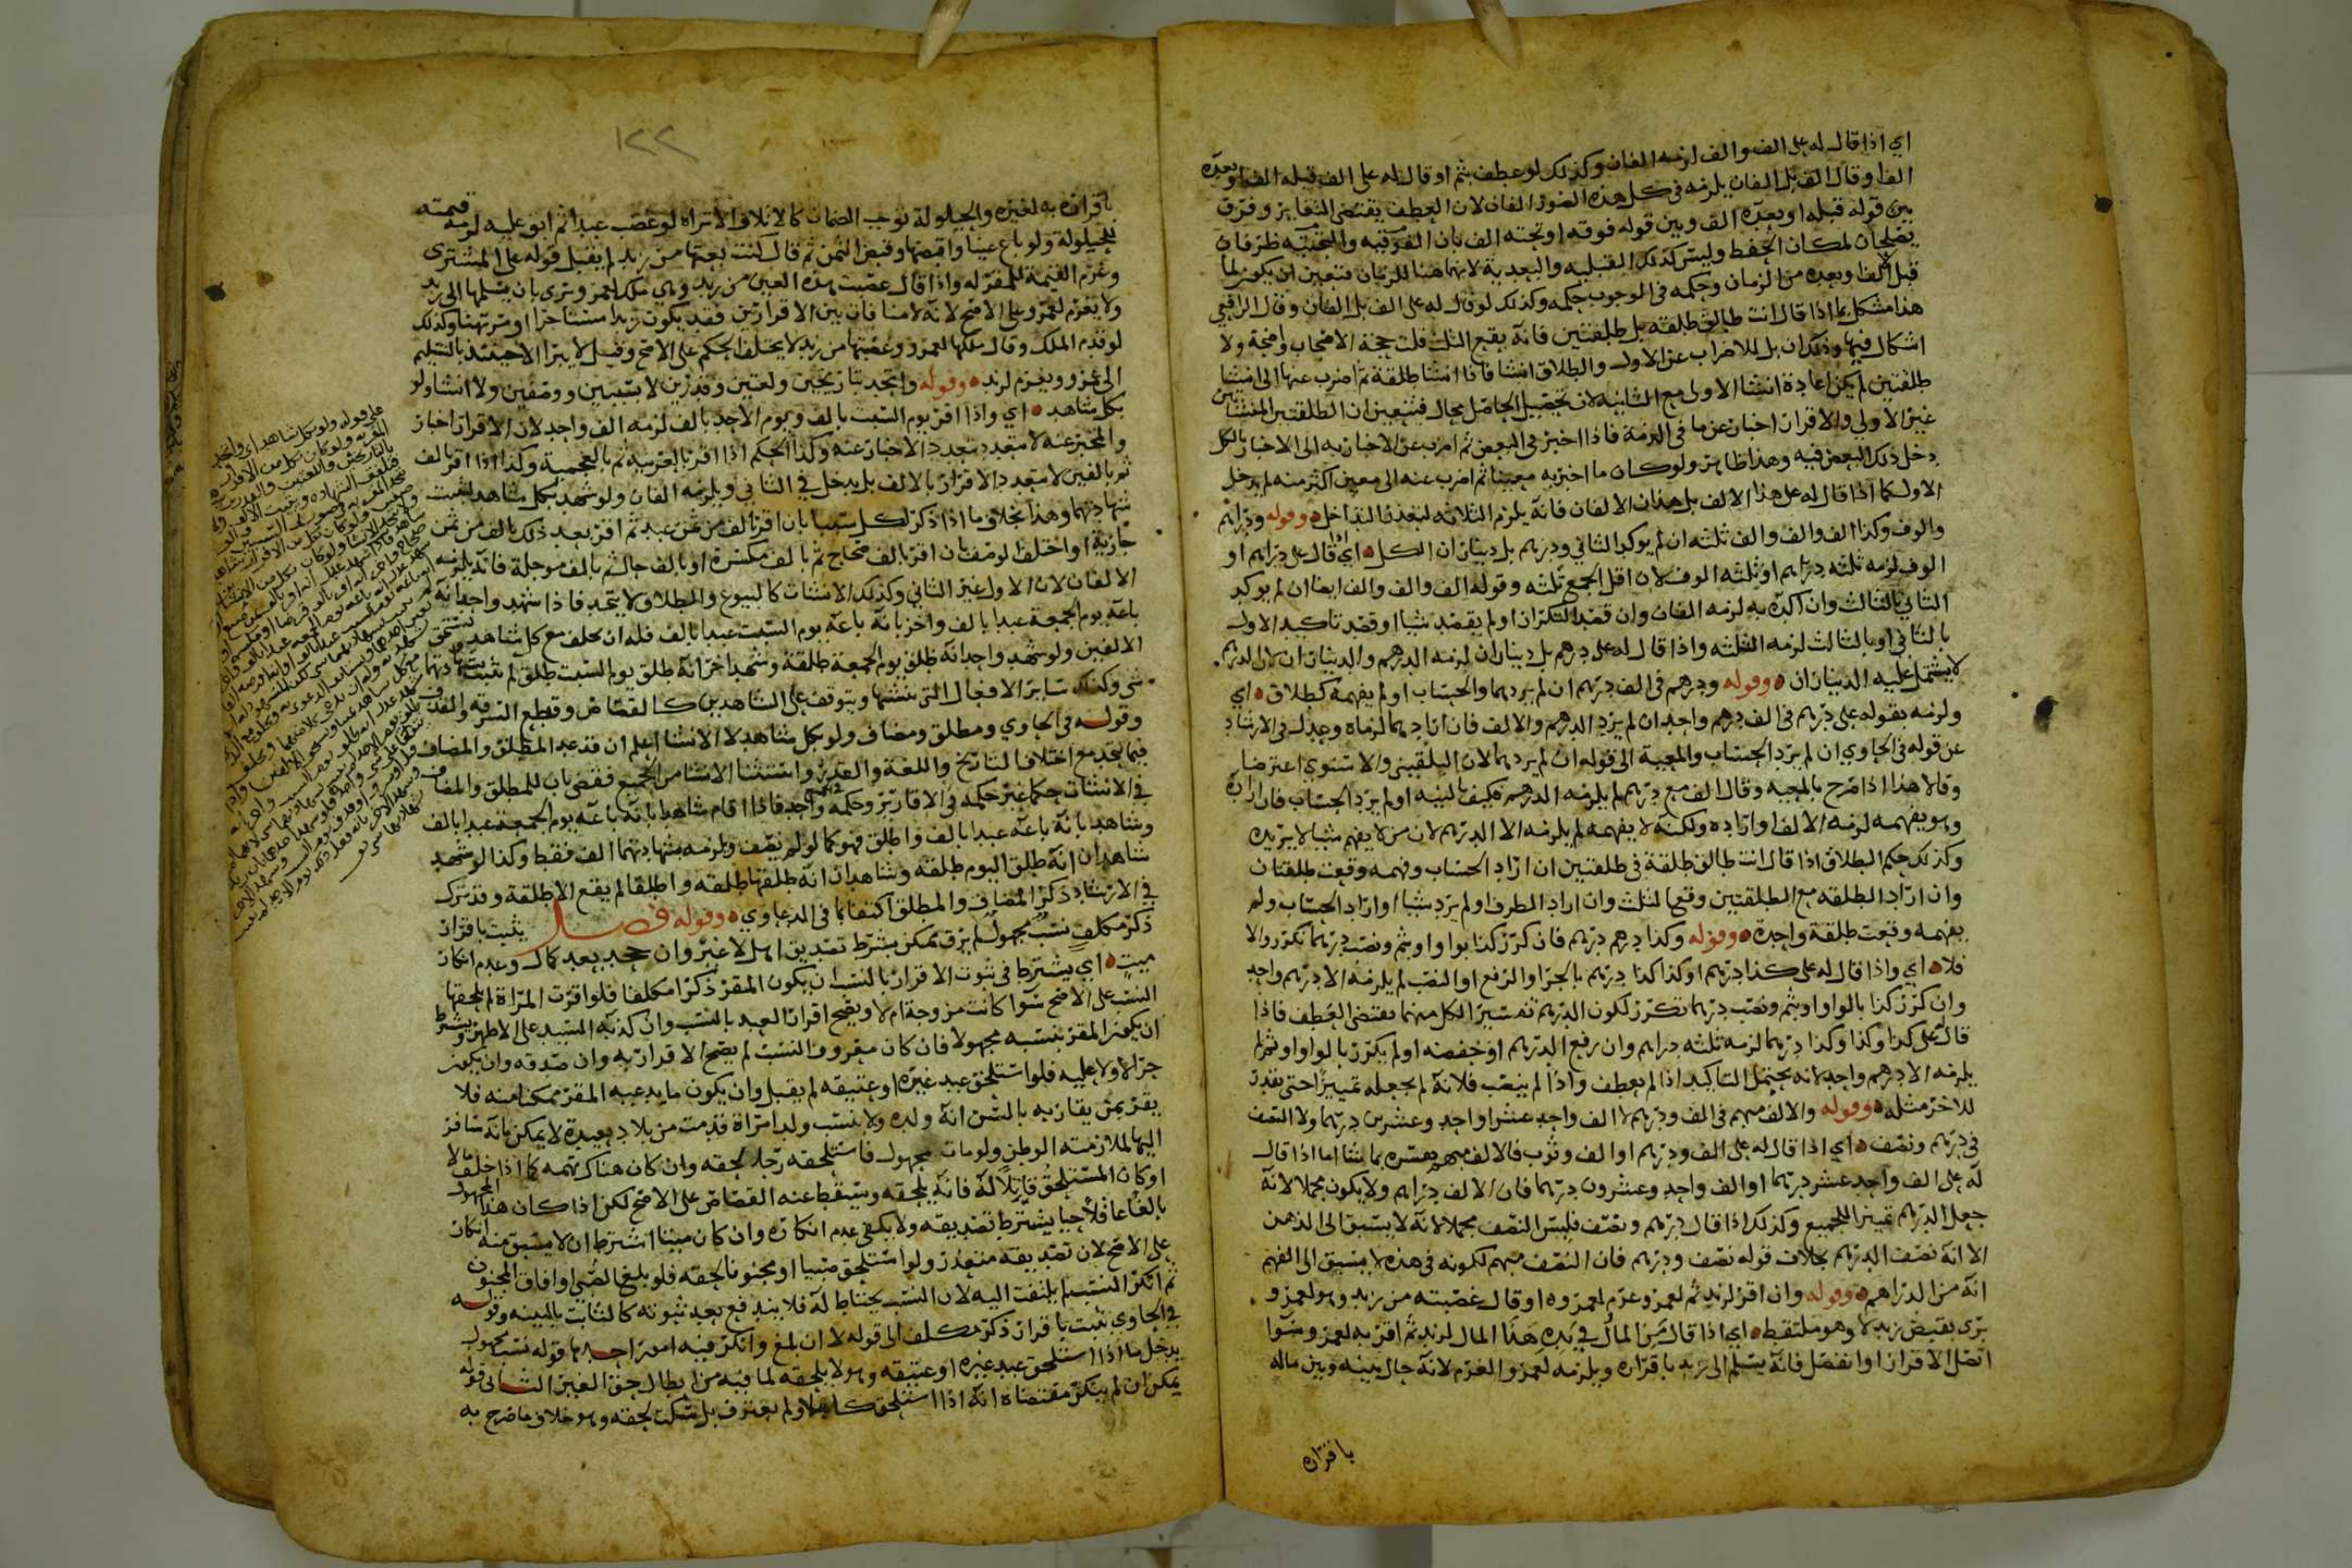 اي اذا قال له على الف والف لزمه الفان وكذلك لو عطف بثم او قال له على الف قبله الف او بعده
الف او قال الف بل الفان يلزمه في كل هذه الصور الفان لان العطف يقتضي التغاير وفرق
بين قوله قبله او بعده الف وبين قوله فوقه او تحته الف بان الفوقيه والتحتيه ظرفان
يصلحان لمكان الحفظ وليس كذلك القبليه والبعدية لانهما هنا للزمان فتعين ان يكون لما
قبل الالف او بعده من الزمان وحكمه في الوجوب حكمه وكذلك لو قال له على الف بل الفان وقال الرافعي
هذا مشكل بما اذا قال انت طالق طلقه بل طلقتين فانه يقع الثلث قلت حجة الاصحاب واضحة ولا
اشكال فيها وذلك ان بل للاضراب عن الاول والطلاق انشا فاذا انشا طلقة ثم اضرب عنها الى انشا
طلقتين لم يكن اعادة انشا الاولى مع الثانيه لان تحصيل الحاصل محال فيتعين ان الطلقتين المنشاتين
غير الاولي والاقرار اخبار عن ما في الذمة فاذا اخبر في البعض ثم اضرب عن الاخبار به الى الاخبار بالكل
دخل ذلك البعض فيه وهذا ظاهر ولو كان ما اخبر به معينا ثم اضرب عنه الى معين اكثر منه لم يدخل
الاول كما اذا قال له على هذا الالف بل هذان الالفان فانه يلزم الثلاثه لتعذر التداخل وقوله ودراهم
والوف وكذا الف والف والف ثلثه ان لم يوكد الثاني ودرهم بل ديناران الكل اي اذا قال علي دراهم او
الوف لزمه ثلثه دراهم او ثلثه الوف لان اقل الجمع ثلثه وقوله الف والف والف ايضا ان لم يوكد
الثاني بالثالث وان اكده به لزمه الفان وان قصد التكرار او لم يقصد شيا او قصد تاكيد الاول
بالثاني او بالثالث لزمه الثلثه واذا قال له على درهم بل ديناران لزمه الدرهم والديناران لان الدرهم
لا يشتمل عليه الديناران وقوله ودرهم في الف درهم ان لم يردهما والحساب او لم يفهمه كطلاق اي
ولزمه بقوله على درهم في الف درهم واحد ان لم يرد الدرهم والالف فان ارادهما لزماه وعدل في الارشاد
عن قوله في الحاوي ان لم يرد الحساب والمعية الى قوله ان لم يردهما لان البلقيني والاسنوي اعترضا
وقالا هذا اذا صرح بالمعيه وقال الف مع درهم لم يلزمه الا درهم فكيف بالنيه او لم يرد الحساب فان اراده
وهو يفهمه لزمه الالف او اراده ولكنه لا يفهمه لم يلزمه الا الدرهم لان من لا يفهم شيا لا يريده
وكذلك حكم الطلاق اذا قال انت طالق طلقة في طلقتين ان اراد الحساب وفهمه وقعت طلقتان
وان اراد الطلقه مع الطلقتين وقعا لثلث وان اراد الظرف او لم يرد شيا او اراد الحساب ولم
يفهمه وقعت طلقة واحدة وقوله وكذا درهم درهم فان كرر كذا بواو او بثم ونصب درهما تكرر والا
فلا اي واذا قال له على كذا درهم او كذا كذا درهم بالجر او الرفع او النصب لم يلزمه الا درهم واحد
وان كرر كذا بالواو او بثم ونصب درهما تكرر لكون الدرهم تفسير الكل منهما بمقتضى العطف فاذا
قال على كذا وكذا وكذا درهما لزمه ثلثه دراهم وان رفع الدرهم او خفضه او لم يكرر بالواو او بثم لم
يلزمه الا درهم واحد لانه يحتمل التاكيد اذا لم يعطف واذا لم ينصب فلانه لم يجعله تمييزا حتى يقدر
للاخر مثله وقوله والالف مبهم في الف ودرهم لا الف واحد عشر او احد وعشرين درهما ولا النصف
في درهم ونصف اي اذا قال له على الف ودرهم او الف وثوب فالالف مبهم يفسره بما شا اما اذا قال
له على الف واحد عشر درهما او الف واحد وعشرون درهما فان الالف دراهم ولا يكون مجملا لانه
جعل الدرهم تمييزا للجميع وكذلك اذا قال درهم ونصف فليس النصف مجملا لانه لا يسبق الى الذهن
الا انه نصف الدرهم بخلاف قوله نصف ودرهم فان النصف مبهم لكونه في هذه لا يسبق الى الفهم
انه من الدراهم وقوله وان اقر لزيد ثم لعمرو غرم لعمرو او قال غصبته من زيد وهو لعمرو
برى بقبض زيد لا وهو ملتقط اي اذا قال من المال في يده هذا المال لزيد ثم اقر به لعمرو سوا
اتصل الاقرار او انفصل فانه يسلم الى زيد باقراره ويلزمه لعمرو الغرم لانه حال بينه وبين ماله
باقراره
١٢٢
باقراره به لغيره والحيلولة توجب الضمان كالاتلاف الا تراه لو غصب عبدا ثم ابق عليه لزمه قيمته
للحيلولة ولو باع عينا واقبضها وقبض الثمن ثم قال كنت بعتها من زيد لم يقبل قوله على المشترى
وغرم القيمة للمقر له واذا قال غصبت هذه العين من زيد وهي ملك لعمرو برى بان يسلمها الى زيد
ولا يغرم لعمرو على الاصح لانه لا منافاة بين الاقرارين فقد يكون زيد مستاجرا او مرتهنا وكذلك
لو قدم الملك وقال ملكها لعمرو وغصبتها من زيد لا يختلف الحكم على الاصح وقيل لا يبرا الا حينئذ بالتسليم
الى عمرو ويغرم لزيد وقوله واتحد بتاريخين ولغتين وقدرين لا بسببين ووصفين ولا انشا ولو
بكل شاهد اي واذا اقر يوم السبت بالف ويوم الاحد بالف لزمه الف واحد لان الاقرار اخبار
والمخبر عنه لا يتعدد بتعدد الاخبار عنه وكذا الحكم اذا اقر بالعربيه ثم بالعجمية وكذا اذا اقر بالف
ثم بالفين لا يتعدد الاقرار بالالف بل يدخل في الثاني ويلزمه الفان ولو شهد بكل شاهد لفقت
شهادتهما وهذا بخلاف ما اذا ذكر لكل سببا بان اقر بالف من ثمن عبد ثم اقر بعد ذلك بالف من ثمن
جارية او اختلف الوصف بان اقر بالف صحاح ثم بالف مكسرة او بالف حال ثم بالف موجلة فانه يلزمه
الالفان لان الاول غير الثاني وكذلك الانشات كالبيوع والطلاق لا يتحد فاذا شهد واحد انه
باعه يوم الجمعة عبدا بالف واخر بانه باعه يوم السبت عبدا بالف فله ان يحلف مع كل شاهد ويستحق
الالفين ولو شهد واحد انه طلق يوم الجمعة طلقة وشهد اخر انه طلق يوم السبت طلق لم تثبت بشهادتهما
شى وكذلك ساير الافعال التى ينشئها ويتوقف على الشاهدين كالقصاص وقطع السرقه والقذف
وقوله في الحاوي ومطلق ومضاف ولو بكل شاهد لا الانشا اعلم ان قد عد المطلق والمضاف
فيما يتحد مع اختلاف التاريخ واللغة والقدر واستثنا الانشا من الجميع فقضى بان للمطلق والمضاف
في الانشات حكما غير حكمه في الاقارير وحكمه واحد فاذا اقام شاهدا بانه باعه يوم الجمعة عبدا بالف
وشاهدا بانه باعه عبدا بالف واطلق فهو كما لو لم يضف ويلزمه بشهادتهما الف فقط وكذا لو شهد
شاهدان انه طلق اليوم طلقه وشاهدان انه طلقها طلقه واطلقا لم يقع الا طلقة وقد ترك
في الارشاد ذكر المضاف والمطلق اكتفا بما في الدعاوي وقوله فصل يثبت باقرار
ذكر مكلف نسب مجهول لم يرق ممكن بشرط تصديق اهل لا غير وان جحد بعد كمال وعدم انكار
ميت اي يشترط في ثبوت الاقرار بالنسب ان يكون المقر ذكرا مكلفا فلو اقرت المراة لم يلحقها
النسب على الاصح سوا كانت مزوجة ام لا ويصح اقرار العبد بالنسب وان كذبه السيد على الاظهر ويشترط
ان يكون المقر بنسبه مجهولا فان كان معروف النسب لم يصح الاقرار به وان صدقه وان يكون
حرا لا ولا عليه فلو استلحق عبد غيره او عتيقه لم يقبل وان يكون ما يدعيه المقر ممكنا منه فلا
يقر بمن يقاربه بالسن انه ولده ولا بنسب ولد امراة قدمت من بلاد بعيدة لا يمكن بانه سافر
اليها لملازمته الوطن ولو مات مجهول فاستلحقه رجلا لحقه وان كان هناك تهمه كما اذا خلف مالا
او كان المستلحق قاتلا له فانه يلحقه ويسقط عنه القصاص على الاصح لكن اذا كان هذا المجهول
بالغا عاقلا حيا يشترط تصديقه ولا يكفى عدم انكاره وان كان ميتا اشترط ان لا يسبق منه انكار
على الاصح لان تصديقه متعذر ولو استلحق صبيا او مجنونا لحقه فلو بلغ الصبي او افاق المجنون
ثم انكر النسب لم يلتفت اليه لان النسب يحتاط له فلا يندفع بعد ثبوته كالثابت بالبينه وقوله
في الحاوي يثبت باقرار ذكر مكلف الى قوله لا ان بلغ وانكر فيه امور احدها قوله نسب مجهول
يدخل ما اذا استلحق عبد غيره او عتيقه وهو لا يلحقه لما فيه من ابطال حق الغير الثاني قوله
يمكن ان لم ينكر مقتضاه انه اذا استلحق كاملا ولم يعترف بل سكت لحقه وهو خلاف ما صرح به